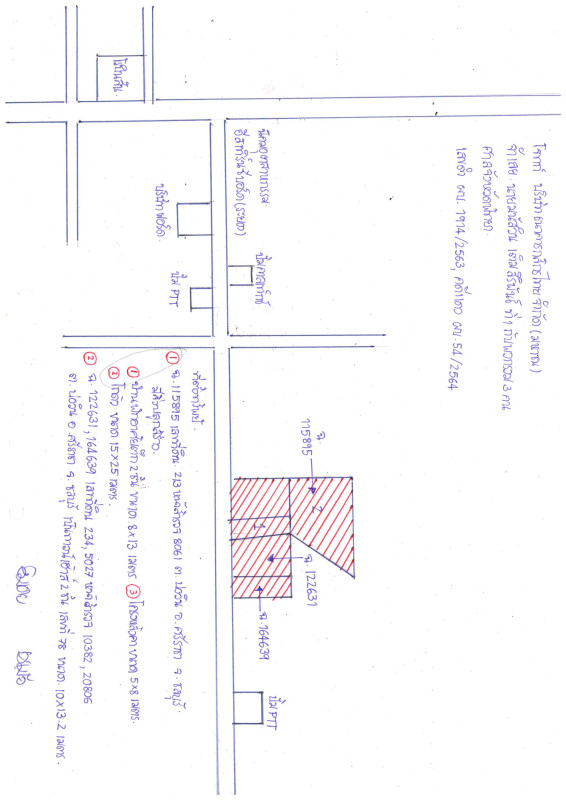 โจทก์ บริษัทธนาคารกสิกรไทย จำกัด (มหาชน)
จำเลย นายมนัสวิน เติมสิริพันธ์ ที่1 กับพวกรวม 3 คน
ศาลจังหวัดพัทยา
เลขดำ ผบ. 1914/2563, คดีแดง ผบ. 54/2564
นิคมอุตสาหกรรม
อีสเทิร์นซีบอร์ด (ระยอง)
ปั๊มคาลเท็กซ์
ไปปั้นสั้น
บริษัทฟอร์ด
ปั๊ม PTT
ฉ.
115895
2
1
ฉ. 122631
ฉ. 164639
ปั๊ม PTT
ที่ตั้งทรัพย์.
① ฉ. 115895 เลขที่ดิน 213 หน้าสำรวจ 8061 ต. บ่อวิน อ. ศรีราชา จ. ชลบุรี.
มีสิ่งปลูกสร้าง.
① บ้านพักอาศัยตึก 2 ชั้น ขนาด 8x13 เมตร ③ โครงหลังคา ขนาด 5x8 เมตร.
② โกดัง ขนาด 15x25 เมตร.
② ฉ. 122631, 164639 เลขที่ดิน 234, 5027 หน้าสำรวจ 10382, 20806
ต. บ่อวิน อ. ศรีราชา จ. ชลบุรี เป็นทาวน์เฮ้าส์ 2 ชั้น เลขที่ 78 ขนาด. 10x13.2 เมตร.